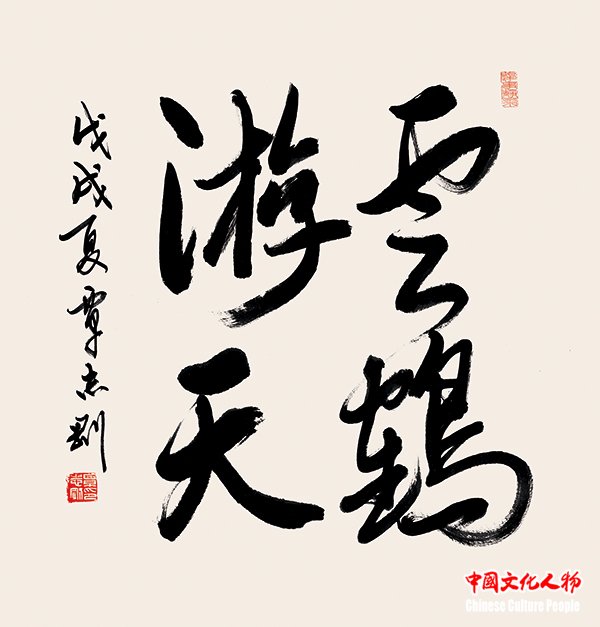 雲鶴
游天
戊戌夏覃志剛
中國文化人物
Chinese Culture People